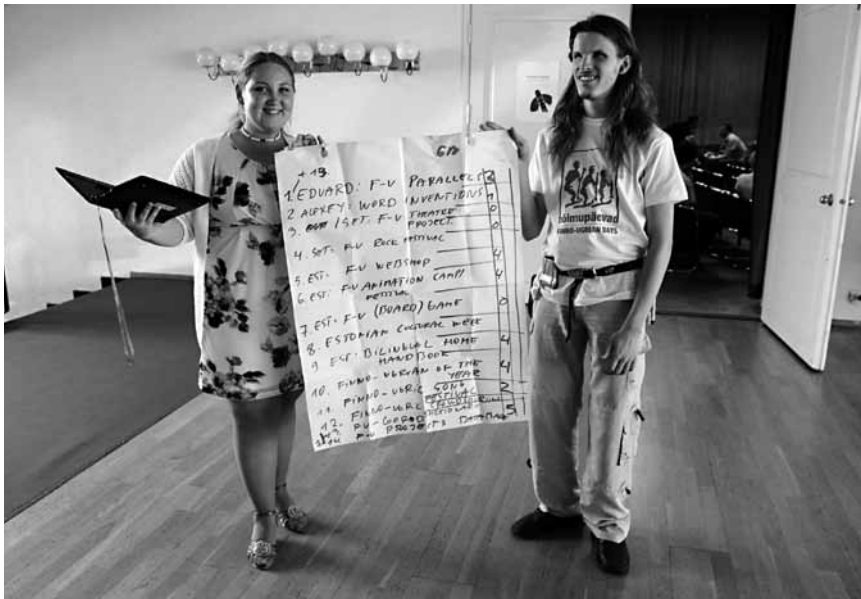 +19
GA
1. EDUARD: F-U PARALLELS 3
2 ALEXEY: WORD INVENTIONS
3. /SET: F-U THEATRE 0
PROJECT. 0
4. SET: F-U ROCK FESTIVAL
5. EST: F-U WEBSHOP 4
6. EST: F-U ANIMATION CAMP/ 4
7. EST: F-U (BOARD) GAME 0
8. ESTONIAN CULTURAL WEEK
9 EST: BILINGUAL HOME 4
HANDBOOK
10. FINNO-UGRIAN OF THE 4
YEAR
11. FINNO-UGRIC SONG 2
FESTIVAL
12. FINNO-UGRIC
F-U PROJECTS DATABASE 5
hõimupäevad
FINNO-UGRIAN DAYS